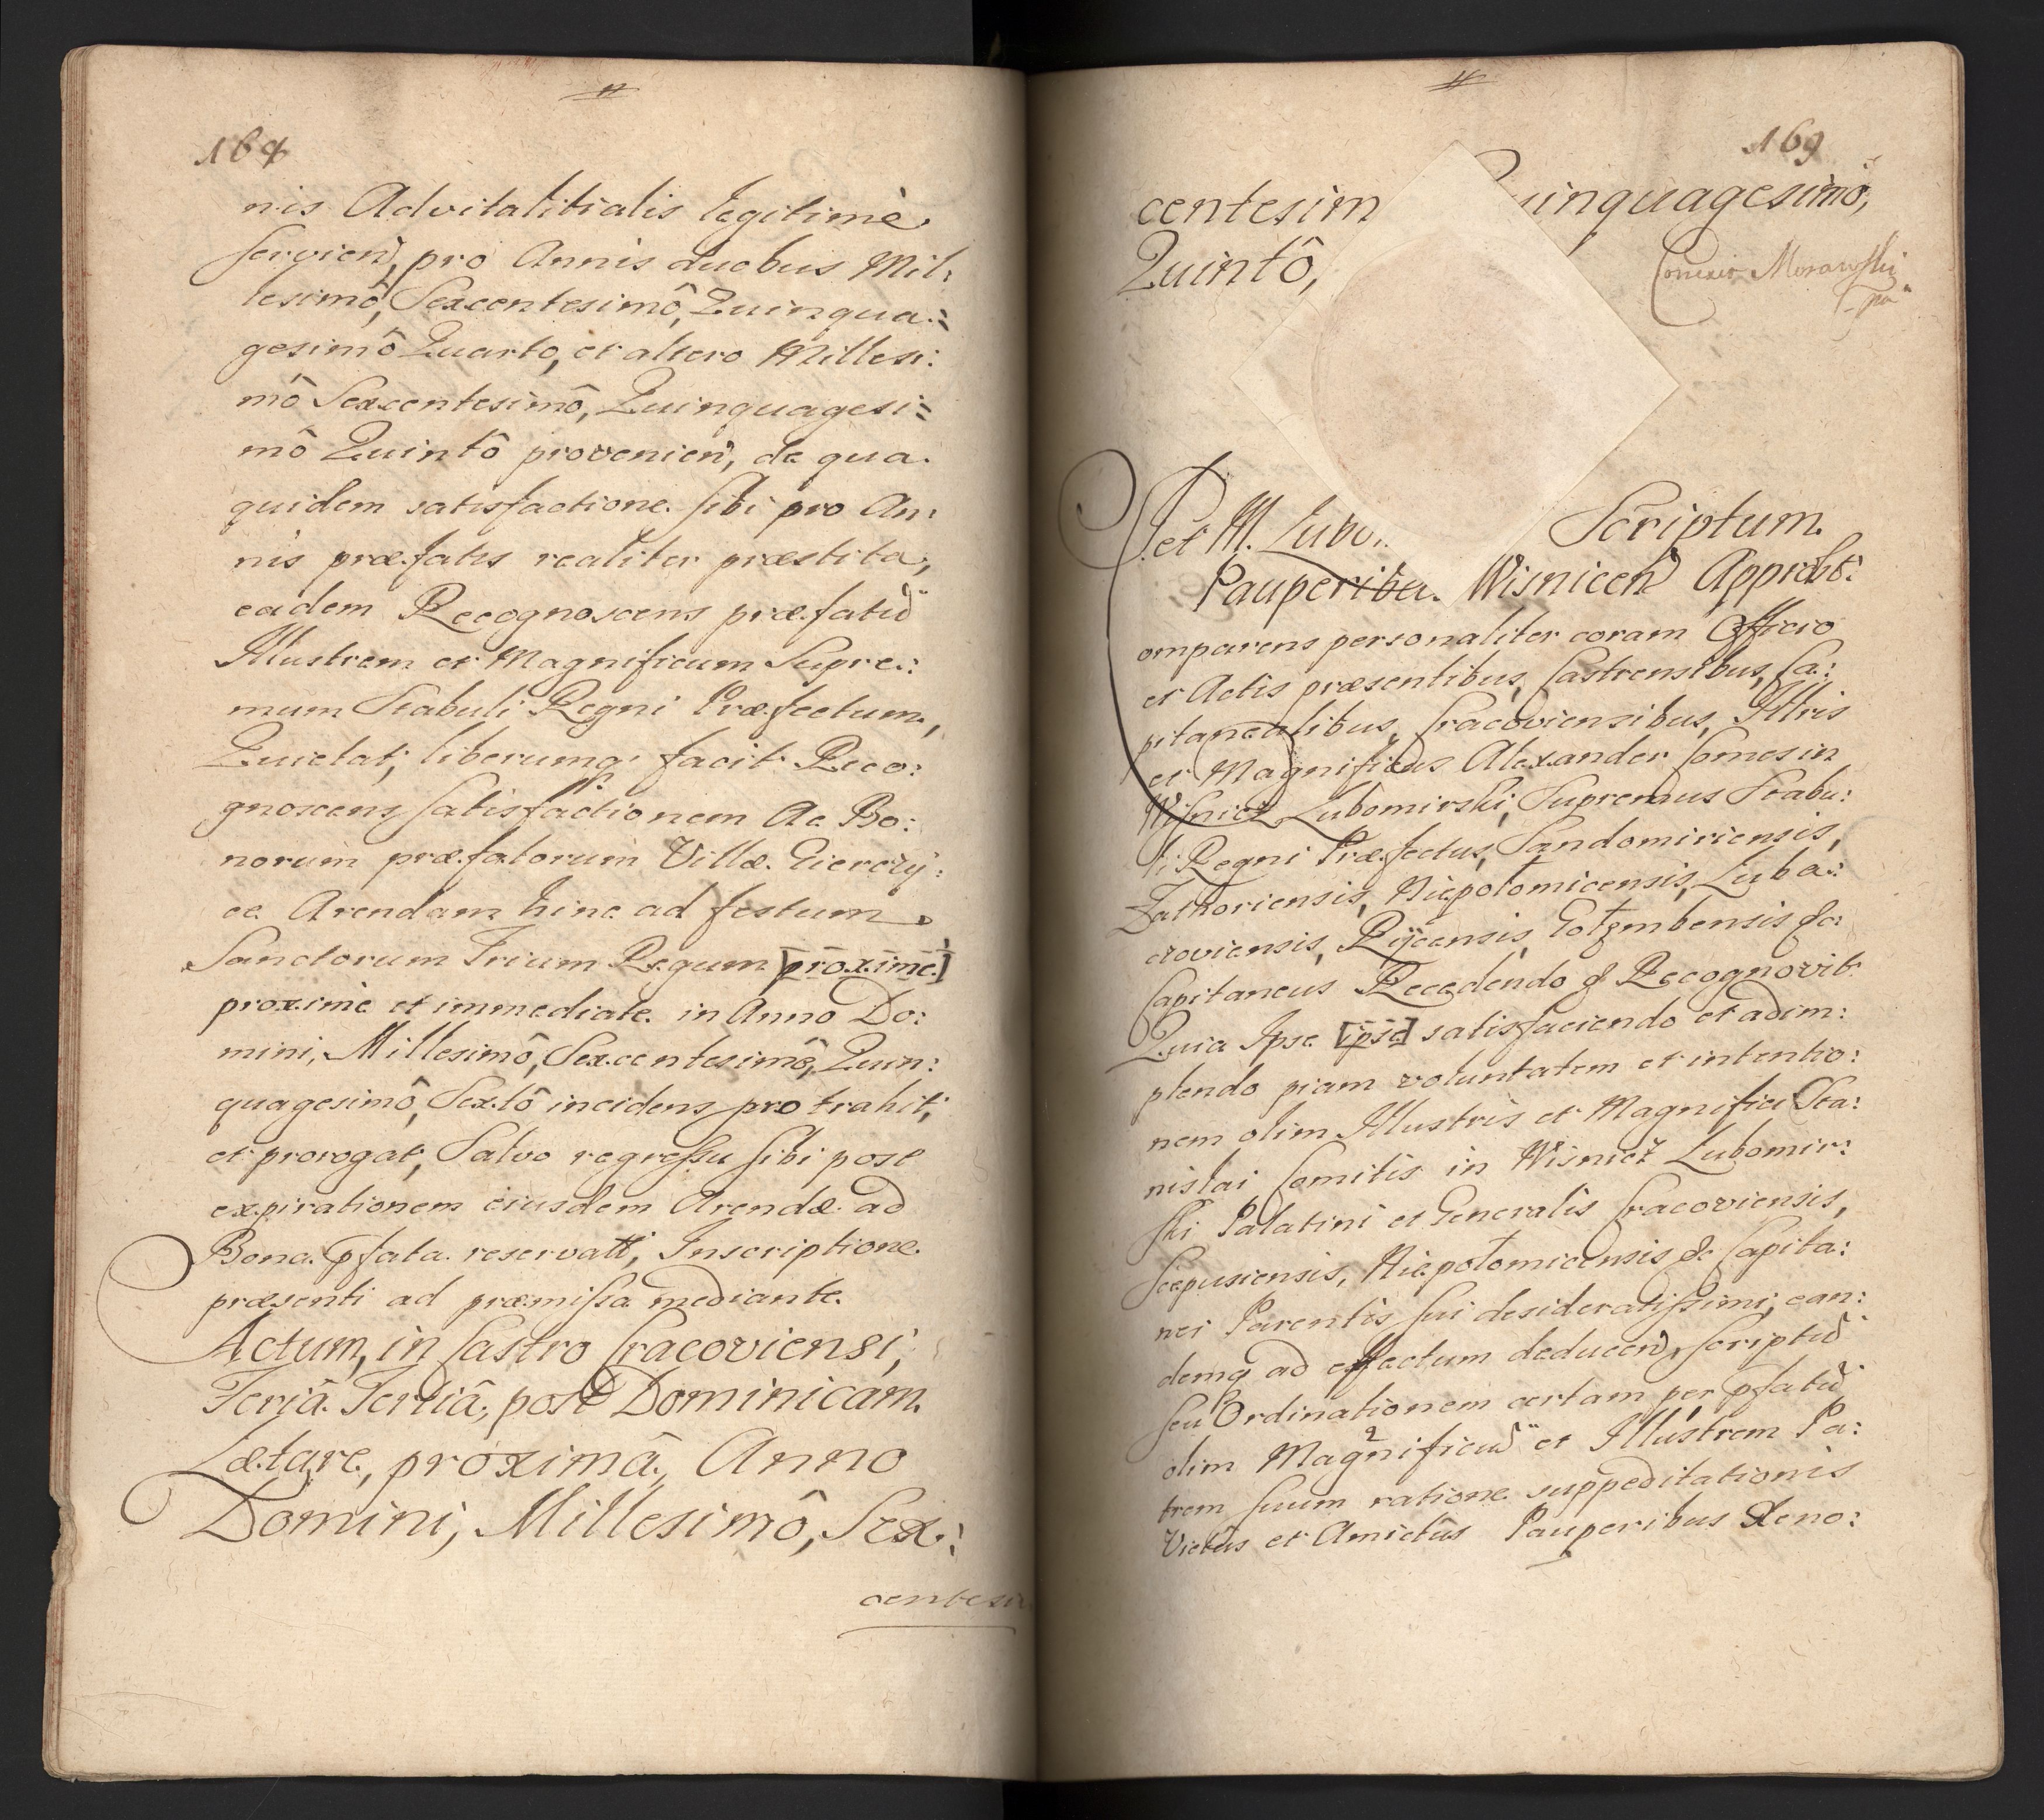 168
nis Advitalitialis legitimè
servien, pro Annis duobus Mil:
lesimô, Sexcentesimô, Quinqua:
gesimô Quarto, et altero Millesi:
mô Sexcentesimô, Quinquagesi=
mô Quintô provenien, de qua
quidem satisfactione sibi pro An:
nis præfatis realiter præstita,
eadem Recognoscens præfatu
Illustrem et Magnificum Supre:
mum Stabuli Regni Præfectum,
Quietat, liberumq facit Reco:
gnoscens satisfactionem Ac Bo:
norum præfatorum Villæ Gierczy:
ce Arendam hinc ad festum
Sanctorum Trium Regum [proxime]
proximè et immediate in Anno Do:
mini, Millesimô, Sexcentesimô, Quin:
quagesimô, Sextô incidens protrahit,
et prorogat, Salvo regressu sibi post
expirationem eiusdem Arendæ ad
Bona pfata reservatt, Inscriptione
præsenti ad præmissa mediante.
Actum, in Castro Cracoviensi,
Feriâ Tertiâ, post Dominicam
Lætare, proximâ, Anno
Domini, Millesimô, Sex:
centesi
169
centesim uinquagesimô,
Quintô,
Conexit Morawski
Il. et M. Lubo. Scriptum
Pauperibu. Wisnicen Approbt:
omparens personaliter coram Officio
et Actis præsentibus, Castrensibus, Ca:
pitanealibus, Cracoviensibus, Illris
et Magnificus Alexander Comes in
Wisnicz Lubomirski, Supremus Stabu:
li Regni Præfectus, Sandomiriensis,
Zathoriensis, Niepolomicensis, Luba:
czoviensis, Ryczensis, &c:
Capitaneus Recedendo & Recognovit
Quia Ipse [ipse] satisfaciendo et adim:
plendo piam voluntatem et intentio:
nem olim Illustris et Magnifici Sta:
nislai Comitis in Wisnicz Lubomir:
ski Palatini et Generalis Cracoviensis,
Scepusiensis, Niepolomicensis &c Capita:
nei Parentis sui desideratissimi, ean:
demq ad effectum deducen, scriptu
seu Ordinationem certam per pfatu
olim Magnificu et Illustrem Pa:
trem suum ratione suppeditationis
Victûs et Amictûs Pauperibus Xeno: